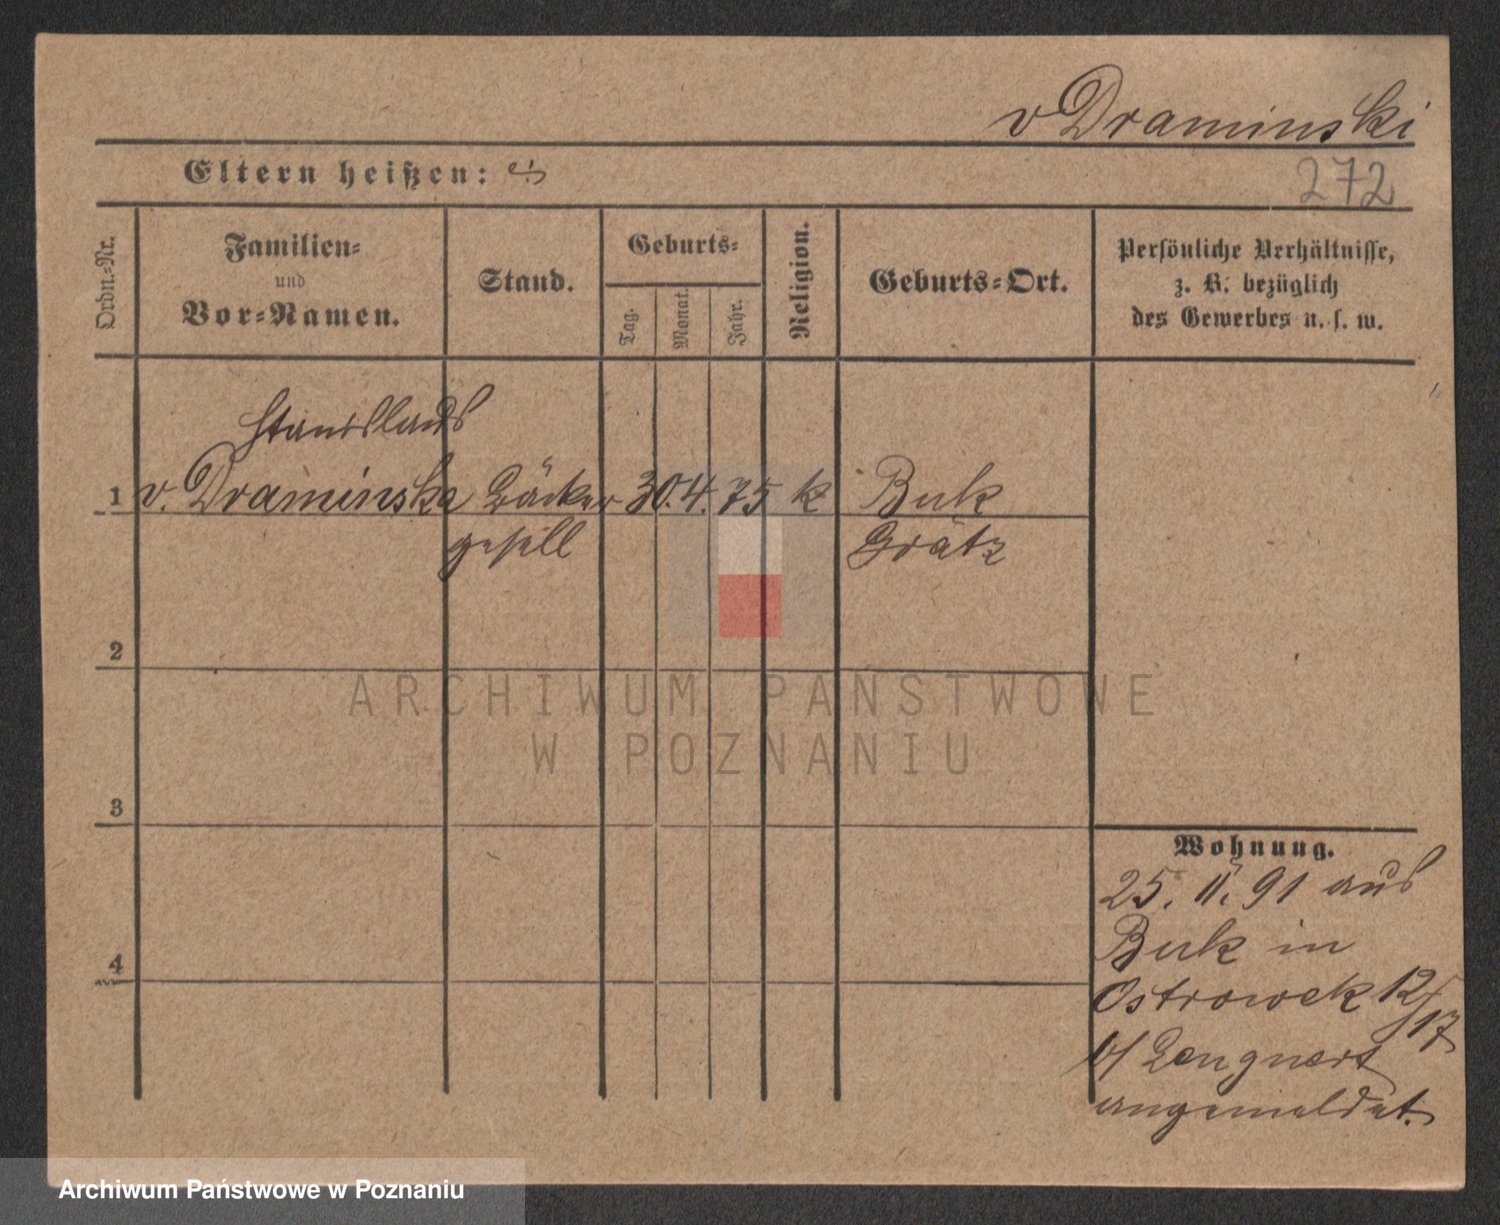 v Draminski
Eltern heißen:
272
Ordn.-Nr.
Familien-
und
Vor-Namen.
Stand.
Geburts-
Tag.
Monat.
Jahr.
Religion.
Geburts-Ort.
Persönliche Verhältnisse,
z. B. bezüglich
des Gewerbes u. s. w.
Stanislaus
1 v. Draminski Bäcker 30. 4. 75 k Buk
gesell Grätz
2
ARCHIWUM PAŃSTWOWE
W POZNANIU
3
Wohnung.
25. 11. 91 aus
Buk in
4
Ostrowek 12/17
b/
angemeldet.
Archiwum Państwowe w Poznaniu